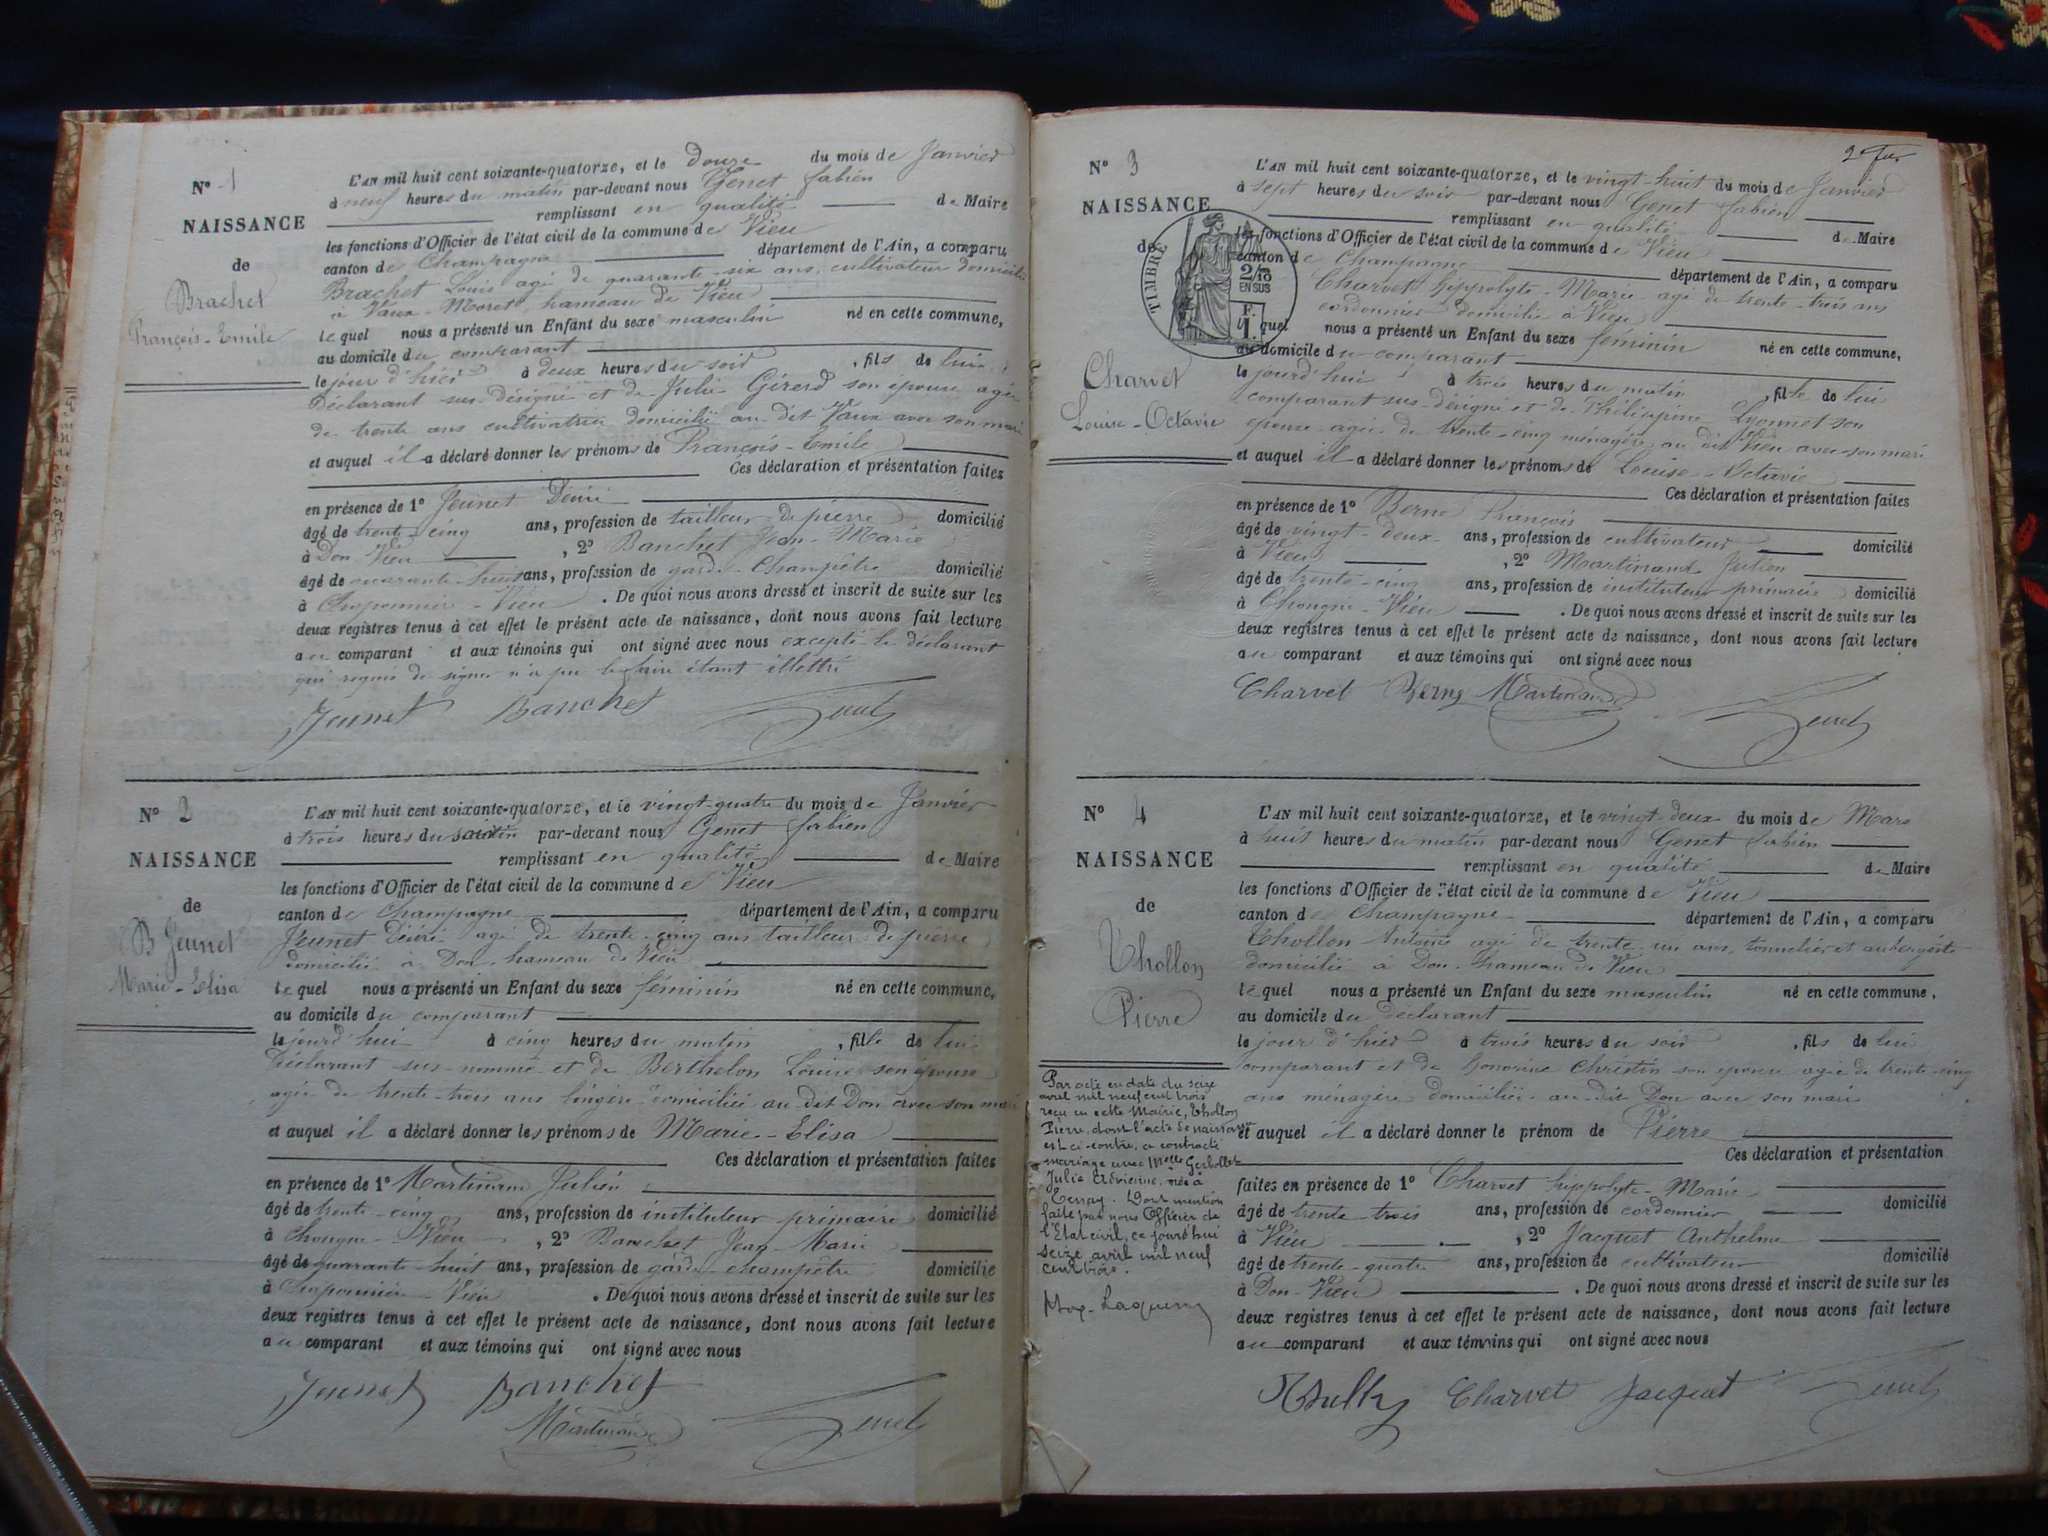 N° 1
NAISSANCE
de
Brachet
François-Emile
L'AN mil huit cent soixante-quatorze, et le douze du mois de Janvier
à neuf heures du matin par-devant nous Genet fabien
remplissant en qualité de Maire
les fonctions d'Officier de l'état civil de la commune de Vieu
canton de Champagne département de l'Ain, a comparu
Brachet Louis agé de quarante-six ans, cultivateur domicilié
à Vaux-Moret, hameau de Vieu
lequel nous a présenté un Enfant du sexe masculin né en cette commune,
au domicile du comparant
le jour d'hier à deux heures du soir, fils de lui
Déclarant sus-désigné et de Julie Girerd son épouse agée
de trente ans cultivatrice domiciliée au dit Vaux avec son mari
et auquel il a déclaré donner les prénoms de François-Emile
Ces déclaration et présentation faites
en présence de 1° Jeunet Désiré
âgé de trente-cinq ans, profession de tailleur de pierre domicilié
à Don Vieu, 2° Banchet Jean-Marie
âgé de quarante-huit ans, profession de garde-Champêtre domicilié
à Chaponnier-Vieu. De quoi nous avons dressé et inscrit de suite sur les
deux registres tenus à cet effet le présent acte de naissance, dont nous avons fait lecture
au comparant et aux témoins qui ont signé avec nous excepté le déclarant
qui requis de signer n'a pu le faire étant illettré
Jeunet Banchet Genet
N° 2
NAISSANCE
de
Jeunet
Marie-Elisa
L'AN mil huit cent soixante-quatorze, et le vingt-quatre du mois de Janvier
à trois heures du soir par-devant nous Genet fabien
remplissant en qualité de Maire
les fonctions d'Officier de l'état civil de la commune de Vieu
canton de Champagne département de l'Ain, a comparu
Jeunet Désiré agé de trente-cinq ans tailleur de pierre
domicilié à Don hameau de Vieu
lequel nous a présenté un Enfant du sexe féminin né en cette commune,
au domicile du comparant
le jourd'hui à cinq heures du matin, fille de lui
Déclarant sus-nommé et de Berthelon Louise son épouse
agée de trente-trois ans lingère domiciliée au dit Don avec son mari
et auquel il a déclaré donner les prénoms de Marie-Elisa
Ces déclaration et présentation faites
en présence de 1° Martinand Julien
âgé de trente-cinq ans, profession de instituteur primaire domicilié
à Chongne-Vieu, 2° Banchet Jean-Marie
âgé de quarante-huit ans, profession de garde-champêtre domicilié
à Chaponnier-Vieu. De quoi nous avons dressé et inscrit de suite sur les
deux registres tenus à cet effet le présent acte de naissance, dont nous avons fait lecture
au comparant et aux témoins qui ont signé avec nous
Jeunet Banchet
Martinand Genet
N° 3
NAISSANCE
de
Charvet
Louise-Octavie
TIMBRE
2/10
EN SUS
F.
1.
L'AN mil huit cent soixante-quatorze, et le vingt-huit du mois de Janvier
à sept heures du soir par-devant nous Genet fabien
remplissant en qualité de Maire
les fonctions d'Officier de l'état civil de la commune de Vieu
canton de Champagne département de l'Ain, a comparu
Charvet hippolyte-Marie agé de trente-trois ans
cordonnier domicilié à Vieu
lequel nous a présenté un Enfant du sexe féminin né en cette commune,
au domicile du comparant
le jourd'hui à trois heures du matin, fille de lui
comparant sus-désigné et de Philippine Lyonnet son
épouse agée de trente-cinq ménagère au dit Vieu avec son mari
et auquel il a déclaré donner les prénoms de Louise-Octavie
Ces déclaration et présentation faites
en présence de 1° Berne François
âgé de vingt-deux ans, profession de cultivateur domicilié
à Vieu, 2° Martinand Julien
âgé de trente-cinq ans, profession de instituteur primaire domicilié
à Chongne-Vieu. De quoi nous avons dressé et inscrit de suite sur les
deux registres tenus à cet effet le présent acte de naissance, dont nous avons fait lecture
au comparant et aux témoins qui ont signé avec nous
Charvet Berne Martinand
Genet
N° 4
NAISSANCE
de
Thollon
Pierre
L'AN mil huit cent soixante-quatorze, et le vingt-deux du mois de Mars
à huit heures du matin par-devant nous Genet fabien
remplissant en qualité de Maire
les fonctions d'Officier de l'état civil de la commune de Vieu
canton de Champagne département de l'Ain, a comparu
Thollon Antoine agé de trente-un ans, tonnelier et aubergiste
domicilié à Don hameau de Vieu
lequel nous a présenté un Enfant du sexe masculin né en cette commune,
au domicile du declarant
le jour d'hier à trois heures du soir, fils de lui
comparant et de honorine Christin son épouse agée de trente-cinq
ans ménagère domiciliée au dit Don avec son mari
et auquel il a déclaré donner le prénom de Pierre
Ces déclaration et présentation
faites en présence de 1° Charvet hippolyte-Marie
âgé de trente-trois ans, profession de cordonnier
à Vieu, 2° Jacquet Anthelme
âgé de trente-quatre ans, profession de cultivateur domicilié
à Don-Vieu. De quoi nous avons dressé et inscrit de suite sur les
deux registres tenus à cet effet le présent acte de naissance, dont nous avons fait lecture
au comparant et aux témoins qui ont signé avec nous
Charvet Jacquet Genet
Par acte en date du seize
avril mil neuf cent trois
reçu en cette Mairie, Thollon
Pierre, dont l'acte de naissance
est ci-contre, a contracté
mariage avec Melle
Julie Etiennie, née à
Tenay. Dont mention
faite par nous Officier de
l'Etat civil, ce jourd'hui
seize avril mil neuf
cent trois.